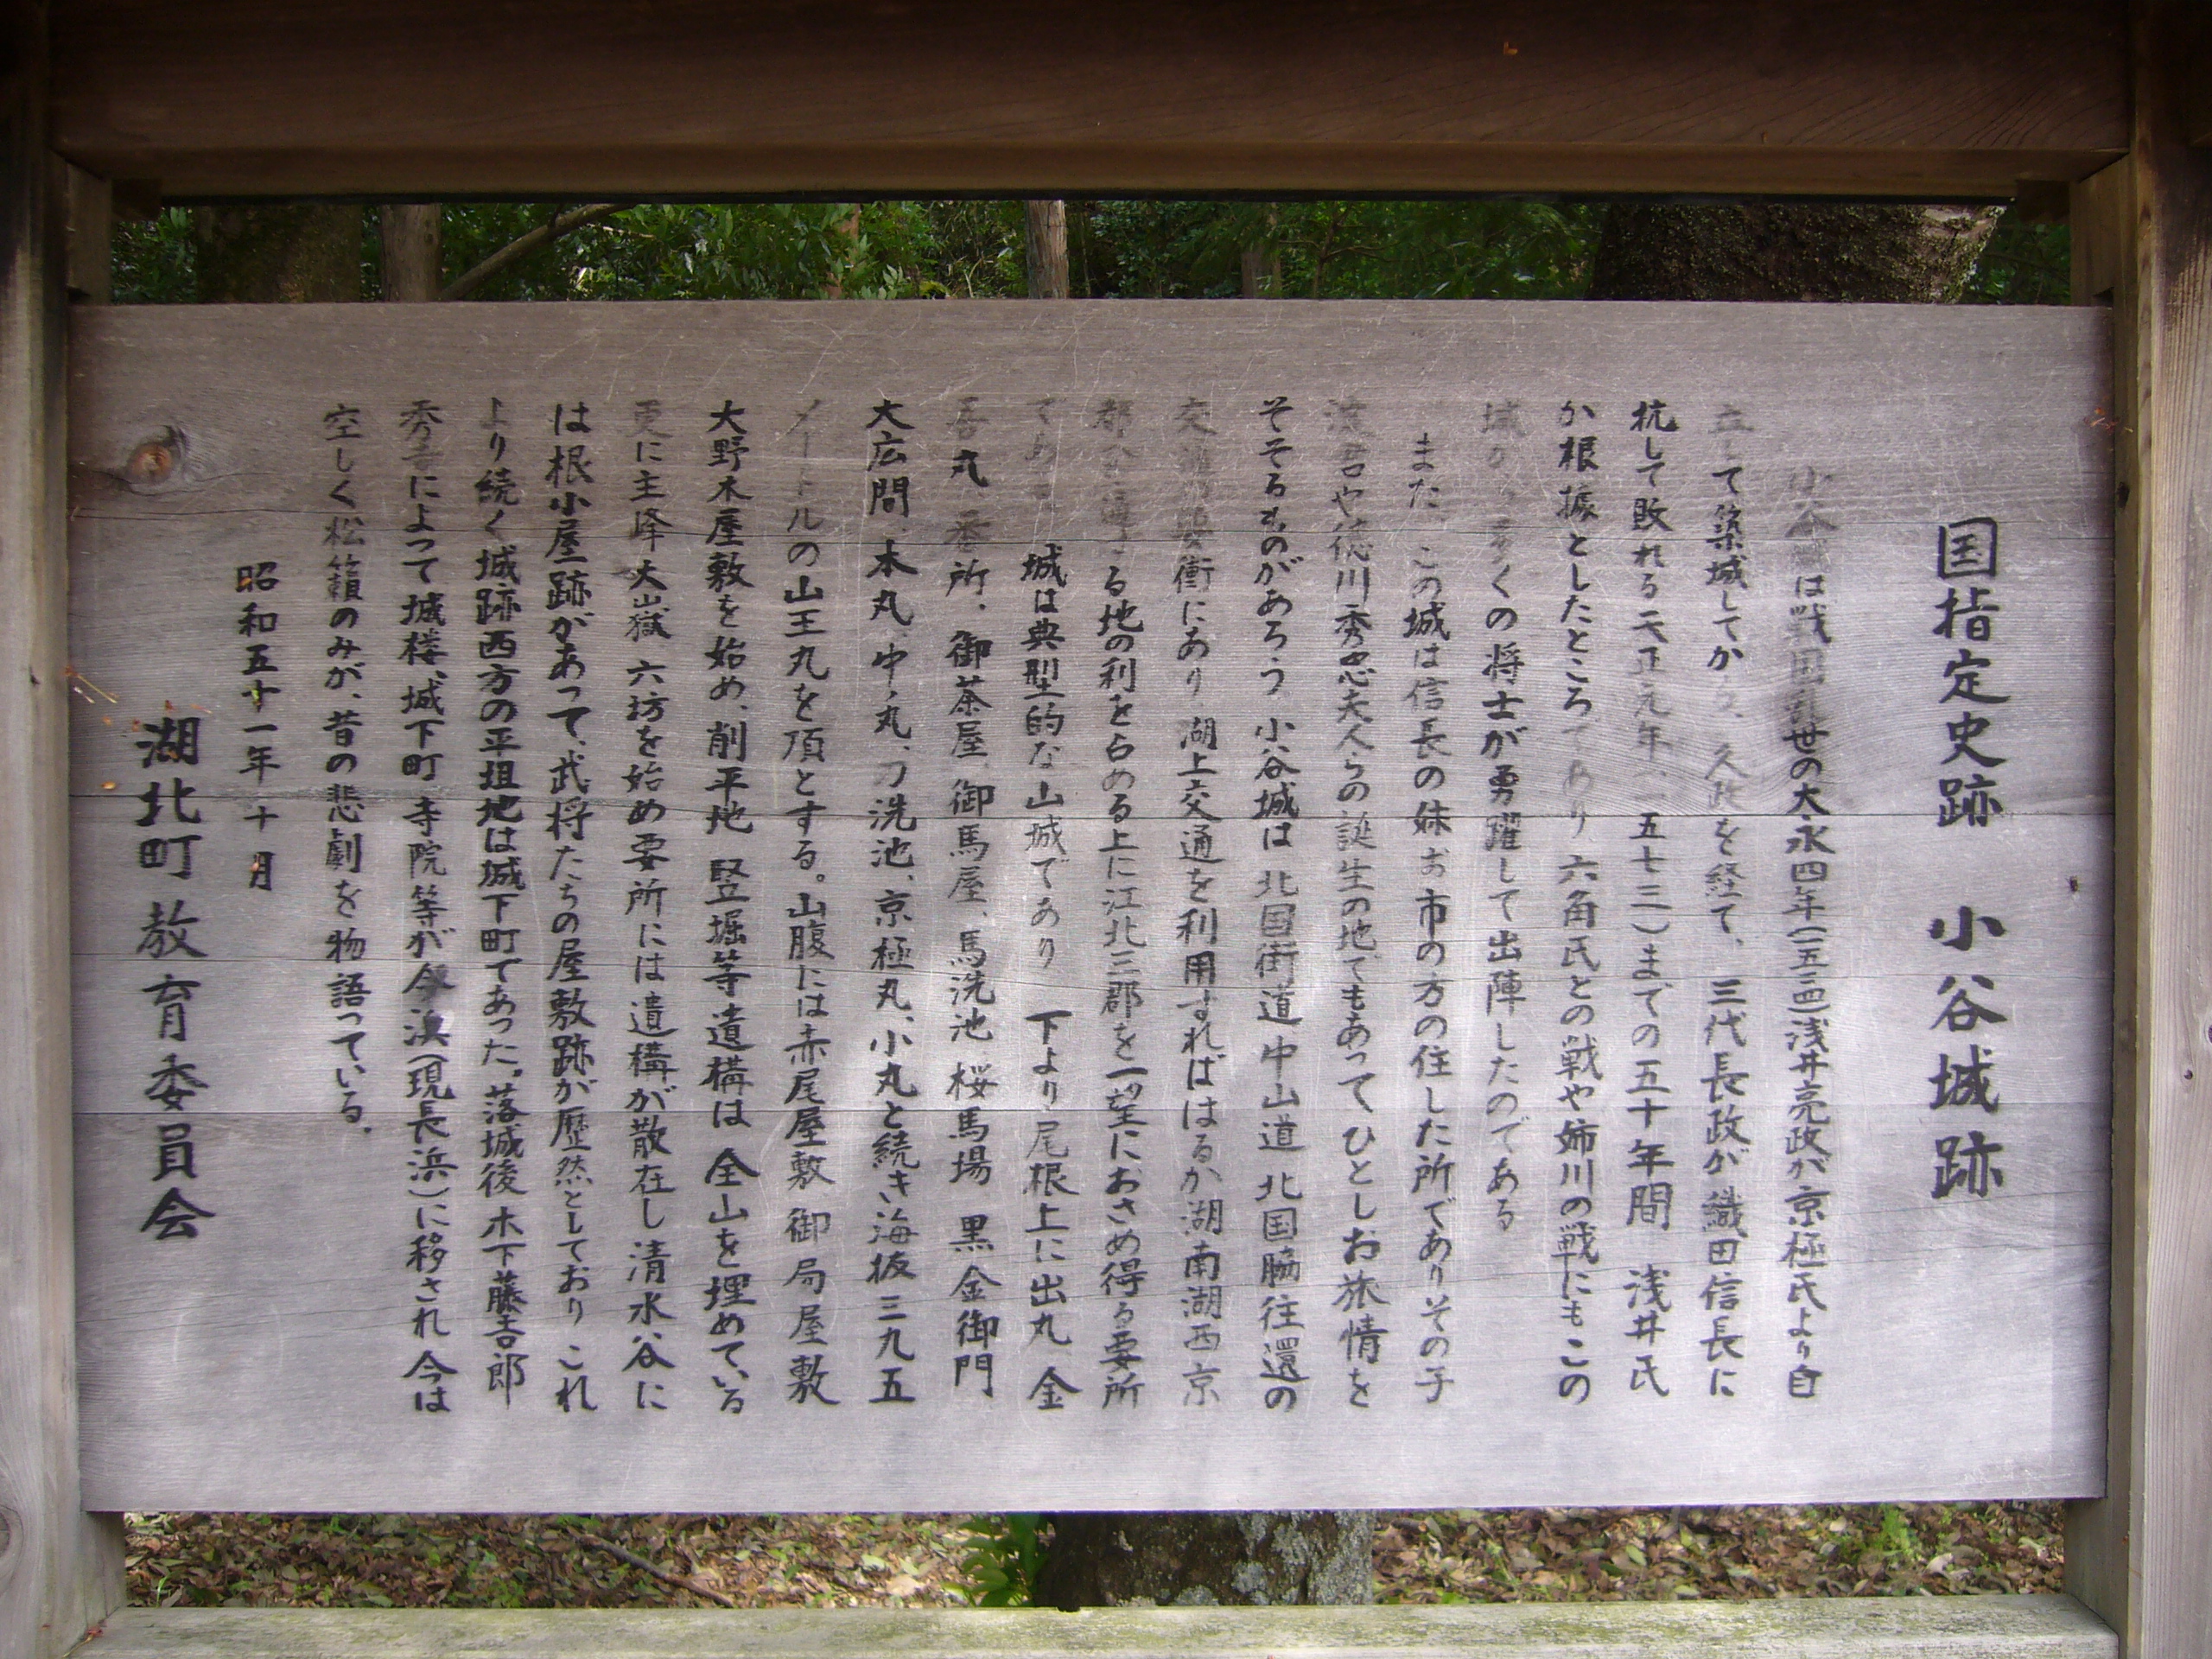 国指定史跡　小谷城跡
は戦国乱世の大永四年(一五二四)浅井亮政が京極氏より自
立して築城してから、久政を経て、三代長政が織田信長に
抗して敗れる天正元年(一五七三)までの五十年間　浅井氏
が根拠としたところであり　六角氏との戦や姉川の戦にもこの
城から多くの将士が勇躍して出陣したのである
また　この城は信長の妹お市の方の住した所でありその子
淀君や徳川秀忠夫人らの誕生の地でもあって、ひとしお旅情を
そそるものがあろう　小谷城は　北国街道　中山道　北国脇往還の
交通の要衝にあり　湖上交通を利用すればはるか湖南湖西京
る地の利を占める上に江北三郡を一望におさめ得る要所
である　城は典型的な山城であり　下より尾根上に出丸　金
吾丸、番所、御茶屋、御馬屋、馬洗池　桜馬場　黒金御門
大広間、本丸、中ノ丸、刀洗池、京極丸、小丸と続き海抜三九五
メートルの山王丸を頂とする。山腹には赤尾屋敷　御局屋敷
大野木屋敷を始め、削平地　竪堀等遺構は　全山を埋めている
更に主峰大嶽　六坊を始め要所には遺構が散在し清水谷に
は根小屋跡があって、武将たちの屋敷跡が歴然としており　これ
より続く城跡西方の平坦地は城下町であった。落城後木下藤吉郎
秀吉によって城楼、城下町　寺院等が今浜(現長浜)に移され今は
空しく松籟のみが、昔の悲劇を物語っている。
昭和五十一年十月
湖北町教育委員会